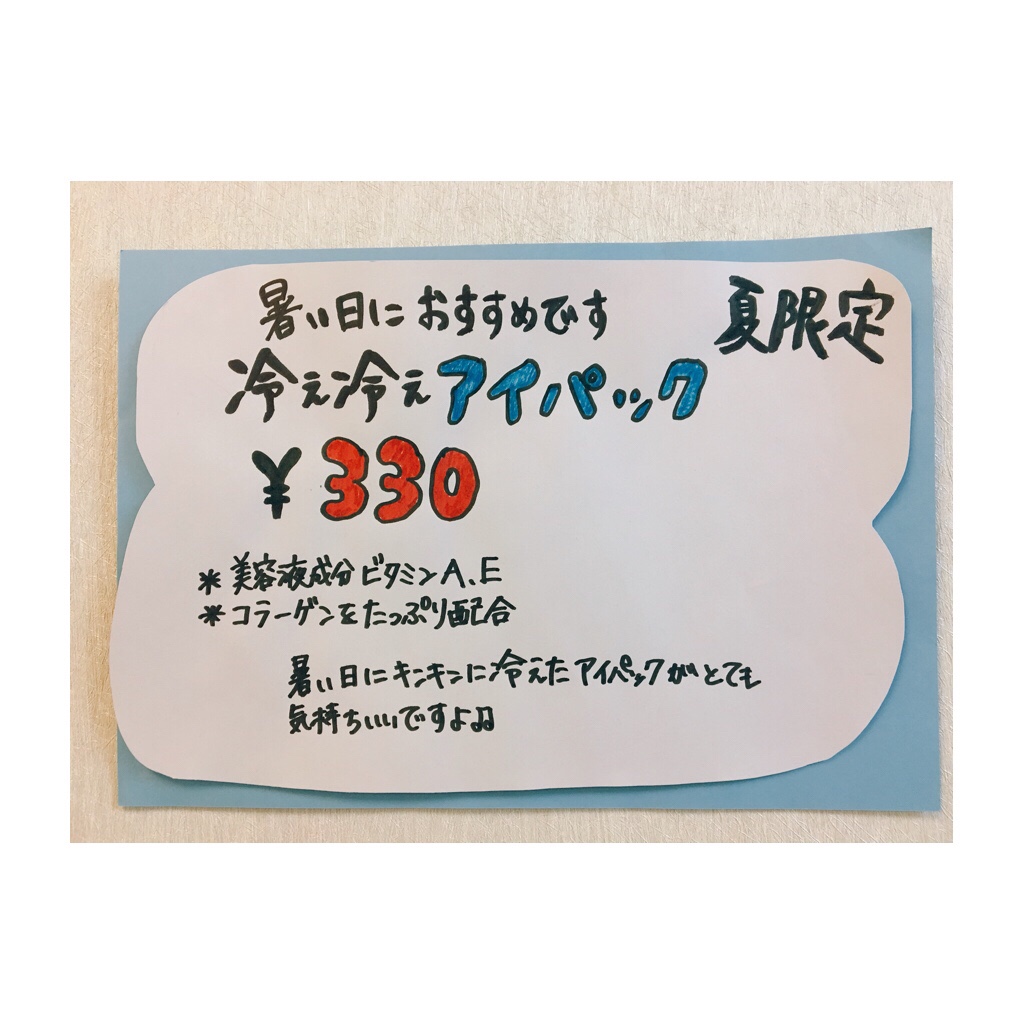 夏限定
暑い日におすすめです
冷え冷えアイパック
¥330
*美容液成分ビタミンA、E
*コラーゲンをたっぷり配合
暑い日にキンキンに冷えたアイパックがとても
気持ちいいですよ♫